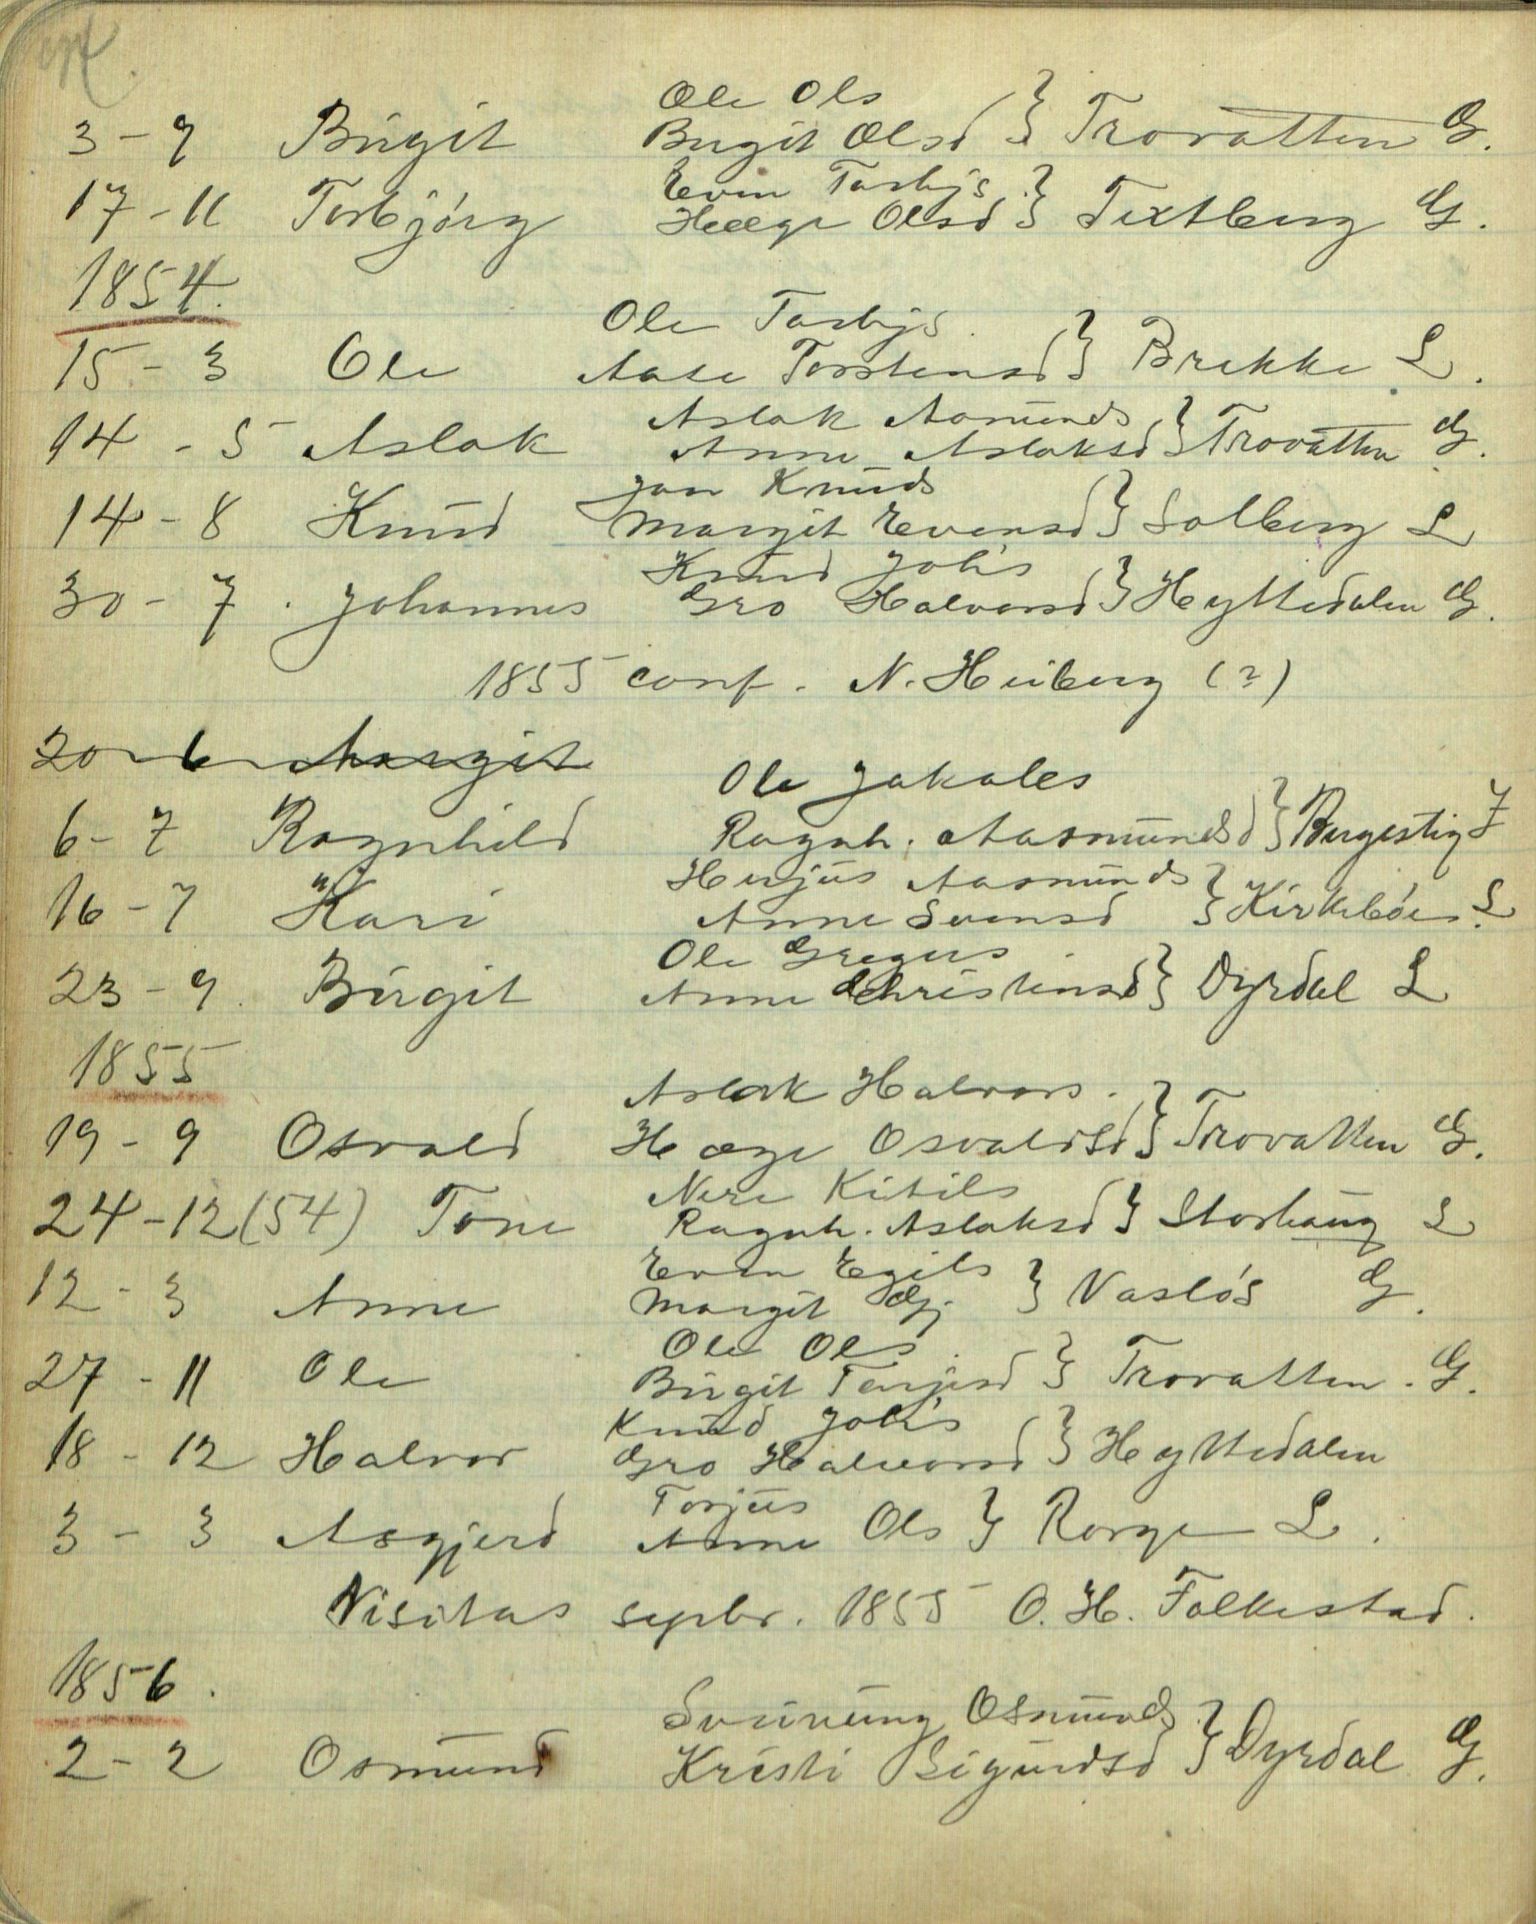 Ole Ols
3 - 9 Birgit Birgit Olsd } Trovatten G.
Even Torbjs.
17 - 11 Torbjörg Hæge Olsd } Textberg G.
1854.
Ole Torbjs.
15 - 3 Ole Aase Torstensd } Brekke L.
Aslak Aasmunds
14 - 5 Aslak Anne Aslaksd } Trovatten G.
Jon Knuds
14 - 8 Knud Margit Evensd } Solberg L
Knud Joh's
30 - 7. Johannes Gro Halvorsd } Hyttedalen G.
1855 conf. N. Heiberg (?)
20 - 6 Margit
Ole Jakoles
6 - 7 Ragnhild Ragnh. Aasmundsd } Bergestig
Herjus Aasmunds
16 - 7 Kari Anne Svensd } Kirkeböen L.
Ole Gregers
23 - 9. Birgit Anne Christensd } Dyrdal L
1855
Aslak Halvors.
19 - 9 Osvald Hæge Osvaldsd } Trovatten G.
Nere Kitils
24 - 12 (54) Tone Ragnh. Aslaksd } Storhaug L
Even Egils
12 - 3 Anne Margit Gj. } Vaslös G.
Ole Ols.
27 - 11 Ole Birgit Terjesd } Trovatten. G.
Knud Joh's
18 - 12 Halvor Gro Halvorsd } Hyttedalen
Torjus
3 - 3 Asgjerd Anne Ols } Rorge L.
Visitas sepbr. 1855 O. H. Folkestad.
1856.
Sveinung Osmunds
2 - 2 Osmund Kristi Sigurdsd } Dyrdal G.